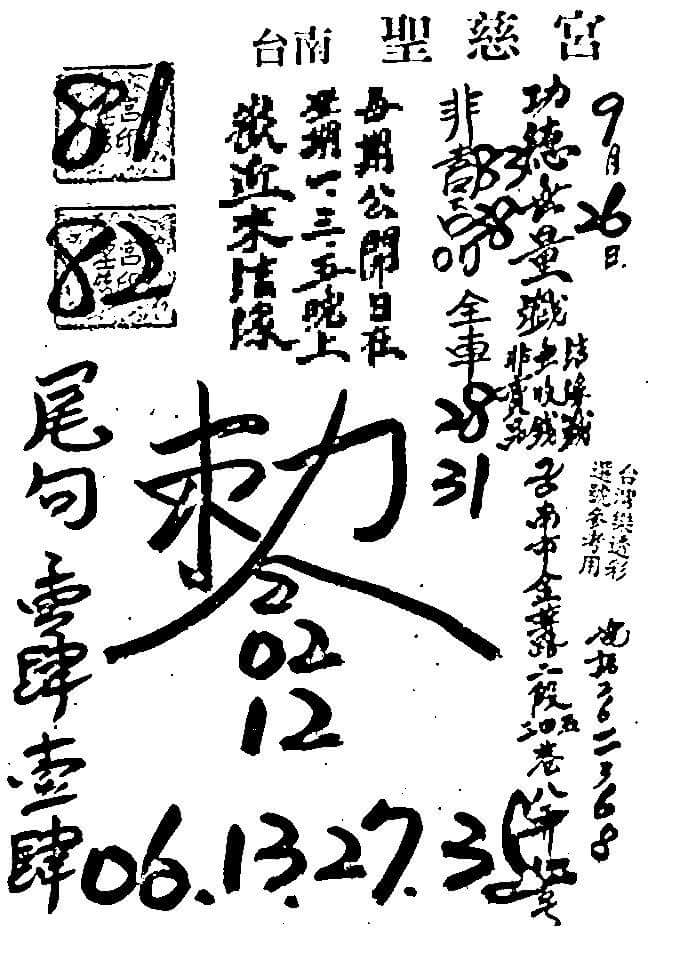 台南 聖慈宮
9月26日.
功德無量 籤
結緣籤
無收錢
非賣品
台灣樂透彩
選號參考用
電話二六二二三68
台南市金華路二段
非賣品 83 28
全車 28 31
每期公開日在
星期一、三、五晚上
歡迎來結緣
81
82
尾句 零肆 壹肆
敕令
02
12
06.13.27.3